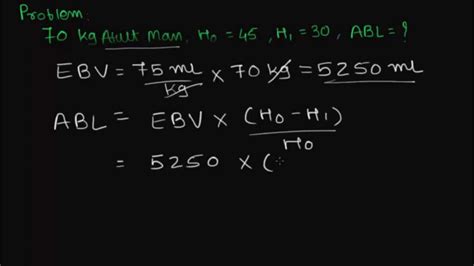 Problem.
70 kg Adult Man, H0 = 45, H1 = 30, ABL = ?
EBV = 75 ml / kg × 70 kg = 5250 ml
ABL = EBV × (H0 - H1) / H0
= 5250 × (